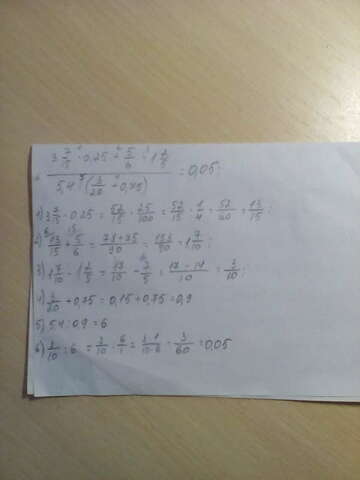 3 7/15 · 0,25 + 5/6 - 1 2/5
5,4 : (3/20 + 0,75) = 0,05;
1) 3 7/15 · 0,25 = 52/15 · 25/100 = 52/15 · 1/4 = 52/60 = 13/15;
2) 13/15 + 5/6 = 78+75/90 = 153/90 = 1 7/10;
3) 1 7/10 - 1 2/5 = 17/10 - 7/5 = 17-14/10 = 3/10;
4) 3/20 + 0,75 = 0,15 + 0,75 = 0,9
5) 5,4 : 0,9 = 6
6) 3/10 : 6 = 3/10 : 6/1 = 3·1/10·6 = 3/60 = 0,05